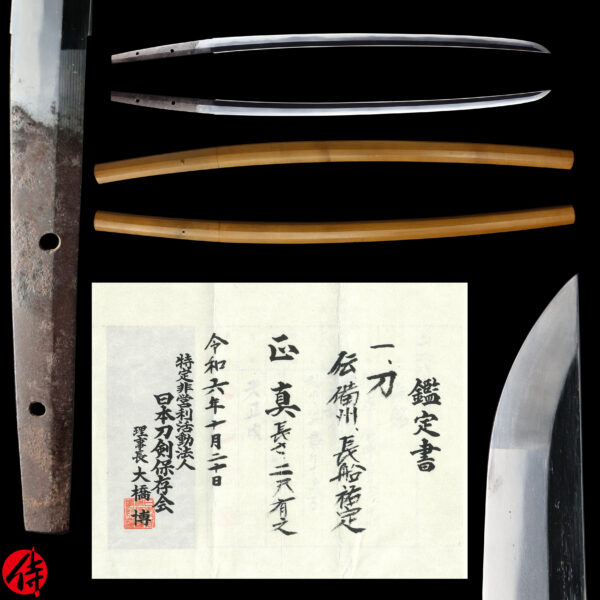 鑑定書
一、刀
伝備州、長船祐定
正真長さ、二尺有之
令和六年十月二十日
特定非営利活動法人
日本刀剣保存会
理事長 大橋 博
侍